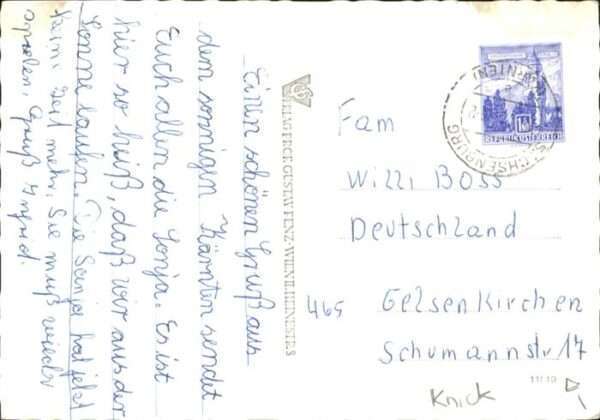 Einen schönen Gruß aus
dem sonnigen Kärnten sendet
Euch allen die Sonja. Es ist
hier so heiß, daß wir aus der
Sonne laufen. Die Sonja hat jetzt
keine Zeit mehr, Sie muß wieder
spielen Gruß Ingrid.
VERLAG FRCE. GUSTAV FENZ. WIEN
REPUBLIK ÖSTERREICH
KÄRNTEN
SACHSENBURG
Fam
Willi Boss
Deutschland
465 Gelsenkirchen
Schumannstr 17
11/10
Knick